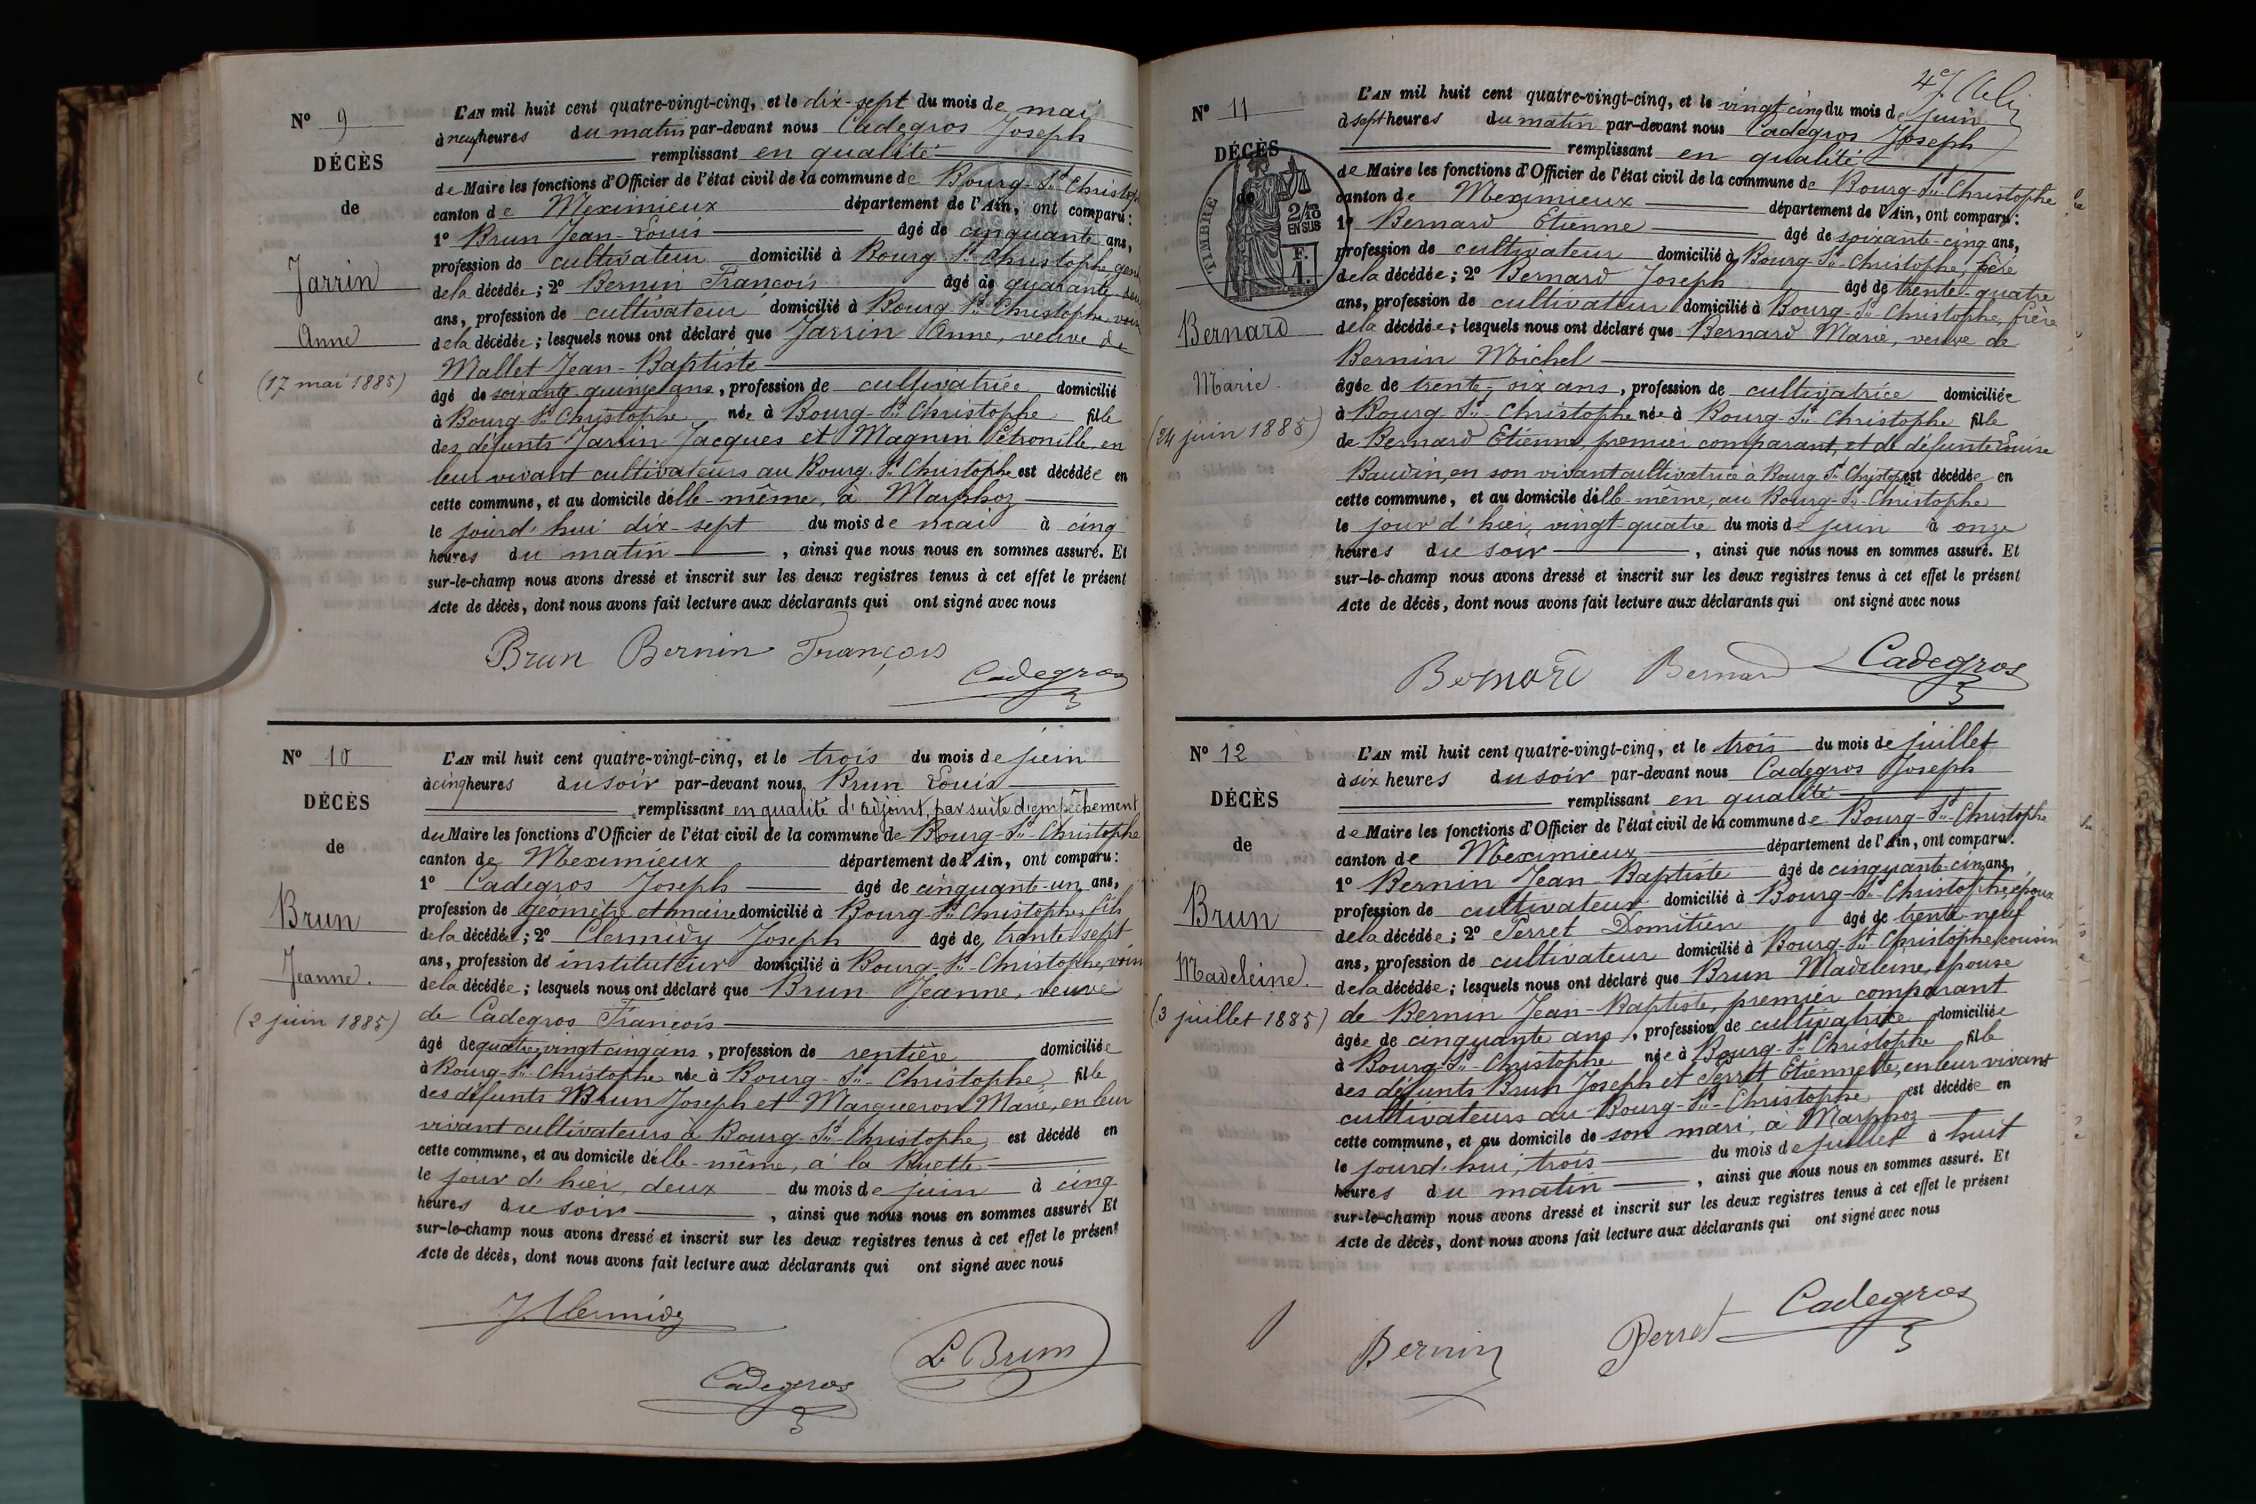 N° 9
DÉCÈS
de
Jarrin
Anne
(17 mai 1885)
L'AN mil huit cent quatre-vingt-cinq, et le dix-sept du mois de mai
à neuf heures du matin par-devant nous Cadegros Joseph
remplissant en qualité
de Maire les fonctions d'Officier de l'état civil de la commune de Bourg-St-Christophe
canton de Meximieux département de l'Ain, ont comparu:
1° Brun Jean-Louis âgé de cinquante ans,
profession de cultivateur domicilié à Bourg St Christophe,
de la décédée; 2° Bernin François âgé de quarante
ans, profession de cultivateur domicilié à Bourg St Christophe, voisin
de la décédée; lesquels nous ont déclaré que Jarrin Anne, veuve de
Mallet Jean-Baptiste
âgé de soixante quinze ans, profession de cultivatrice domicilié
à Bourg-St Christophe née à Bourg-St-Christophe fille
des défunts Jarrin Jacques et Magnin Pétronille, en
leur vivant cultivateurs au Bourg-St-Christophe est décédée en
cette commune, et au domicile d'elle-même, à Marphoz
le jourd'hui dix-sept du mois de mai à cinq
heures du matin, ainsi que nous nous en sommes assuré. Et
sur-le-champ nous avons dressé et inscrit sur les deux registres tenus à cet effet le présent
Acte de décès, dont nous avons fait lecture aux déclarants qui ont signé avec nous
Brun Bernin François
Cadegros
N° 10
DÉCÈS
de
Brun
Jeanne.
(2 juin 1885)
L'AN mil huit cent quatre-vingt-cinq, et le trois du mois de juin
à cinq heures du soir par-devant nous Brun Louis
remplissant en qualité d'adjoint, par suite d'empêchement
du Maire les fonctions d'Officier de l'état civil de la commune de Bourg-St-Christophe
canton de Meximieux département de l'Ain, ont comparu:
1° Cadegros Joseph âgé de cinquante-un ans,
profession de géomètre et maire domicilié à Bourg-St-Christophe, fils
de la décédée; 2° Clermidy Joseph âgé de trente sept
ans, profession de instituteur domicilié à Bourg-St-Christophe, voisin
de la décédée; lesquels nous ont déclaré que Brun Jeanne, veuve
de Cadegros François
âgé de quatre vingt cinq ans, profession de rentière domiciliée
à Bourg-St-Christophe née à Bourg-St-Christophe fille
des défunts Brun Joseph et Margueron Marie, en leur
vivant cultivateurs à Bourg-St-Christophe est décédé en
cette commune, et au domicile d'elle-même, à la Ruette
le jour d'hier, deux du mois de juin à cinq
heures du soir, ainsi que nous nous en sommes assuré. Et
sur-le-champ nous avons dressé et inscrit sur les deux registres tenus à cet effet le présent
Acte de décès, dont nous avons fait lecture aux déclarants qui ont signé avec nous
J. Clermidy
L Brun
Cadegros
4e f.
N° 11
DÉCÈS
de
TIMBRE
2/10
EN SUS
F.
1.
Bernard
Marie.
(24 juin 1885)
L'AN mil huit cent quatre-vingt-cinq, et le vingt cinq du mois de juin
à sept heures du matin par-devant nous Cadegros Joseph
remplissant en qualité
de Maire les fonctions d'Officier de l'état civil de la commune de Bourg-St-Christophe
canton de Meximieux département de l'Ain, ont comparu:
1° Bernard Etienne âgé de soixante-cinq ans,
profession de cultivateur domicilié à Bourg-St-Christophe, père
de la décédée; 2° Bernard Joseph âgé de trente-quatre
ans, profession de cultivateur domicilié à Bourg-St-Christophe, frère
de la décédée; lesquels nous ont déclaré que Bernard Marie, veuve de
Bernin Michel
âgée de trente-six ans, profession de cultivatrice domiciliée
à Bourg-St-Christophe née à Bourg-St-Christophe fille
de Bernard Etienne, premier comparant, et de défunte Louise
Baudin, en son vivant cultivatrice à Bourg St Christophe est décédée en
cette commune, et au domicile d'elle-même, au Bourg-St-Christophe
le jour d'hier, vingt-quatre du mois de juin à onze
heures du soir, ainsi que nous nous en sommes assuré. Et
sur-le-champ nous avons dressé et inscrit sur les deux registres tenus à cet effet le présent
Acte de décès, dont nous avons fait lecture aux déclarants qui ont signé avec nous
Bernard Bernard Cadegros
N° 12
DÉCÈS
de
Brun
Madeleine.
(3 juillet 1885)
L'AN mil huit cent quatre-vingt-cinq, et le trois du mois de juillet
à six heures du soir par-devant nous Cadegros Joseph
remplissant en qualité
de Maire les fonctions d'Officier de l'état civil de la commune de Bourg-St-Christophe
canton de Meximieux département de l'Ain, ont comparu:
1° Bernin Jean Baptiste âgé de cinquante-cinq ans,
profession de cultivateur domicilié à Bourg-St-Christophe, époux
de la décédée; 2° Perret Domitien âgé de trente-neuf
ans, profession de cultivateur domicilié à Bourg-St-Christophe, cousin
de la décédée; lesquels nous ont déclaré que Brun Madeleine, épouse
de Bernin Jean-Baptiste, premier comparant
âgée de cinquante ans, profession de cultivatrice domiciliée
à Bourg-St-Christophe née à Bourg-St-Christophe fille
des défunts Brun Joseph et Perret Etiennette, en leur vivant
cultivateurs au Bourg-St-Christophe est décédée en
cette commune, et au domicile de son mari, à Marphoz
le jourd'hui, trois du mois de juillet à huit
heures du matin, ainsi que nous nous en sommes assuré. Et
sur-le-champ nous avons dressé et inscrit sur les deux registres tenus à cet effet le présent
Acte de décès, dont nous avons fait lecture aux déclarants qui ont signé avec nous
Bernin Perret Cadegros